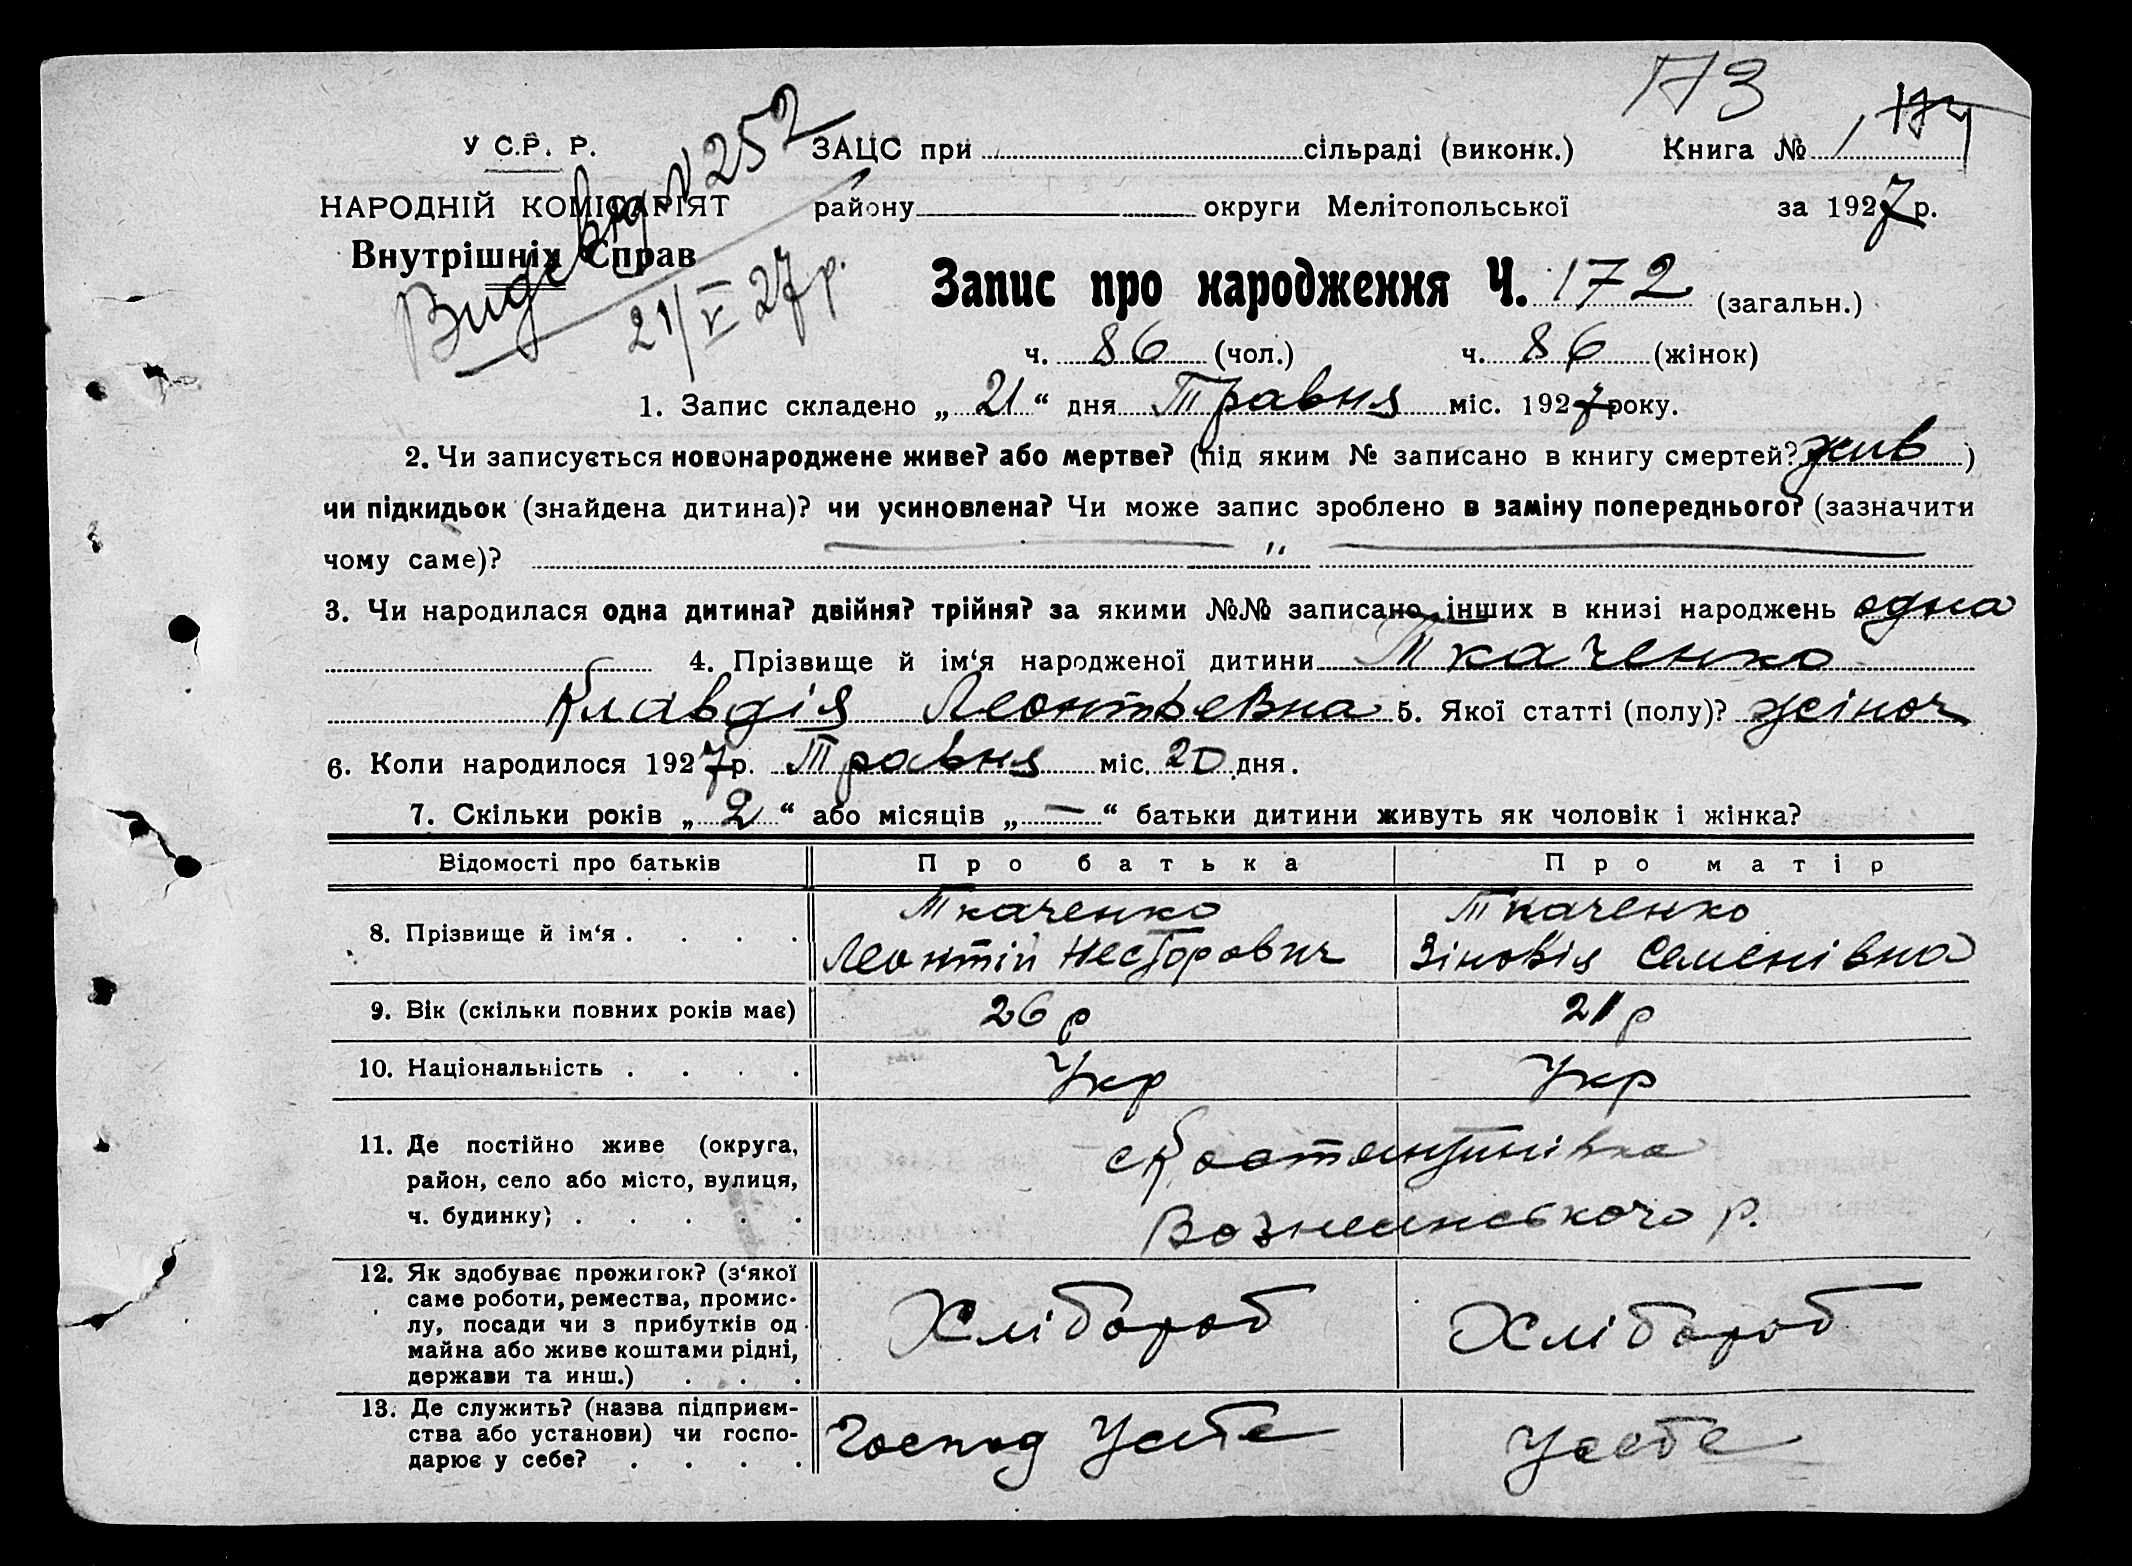 173
У С.Р. Р.
ЗАЦС при сільраді (виконк.) Книга № 1 174
НАРОДНІЙ КОМІСАРІЯТ
району округи Мелітопольської за 1927 р.
Внутрішніх Справ
252
21/V 27 р.
Запис про народження Ч. 172 (загальн.)
ч. 86 (чол.) ч. 86 (жінок)
1. Запис складено „ 21 “ дня Травня міс. 1927 року.
2. Чи записується новонароджене живе? або мертве? (під яким № записано в книгу смертей? жив )
чи підкидьок (знайдена дитина)? чи усиновлена? Чи може запис зроблено в заміну попереднього? (зазначити
чому саме)? — „ —
3. Чи народилася одна дитина? двійня? трійня? за якими №№ записано інших в книзі народжень одна
4. Прізвище й ім‘я народженої дитини Ткаченко
Клавдія Леонтьевна 5. Якої статті (полу)? жіноч
6. Коли народилося 1927 р. Травня міс. 20 дня.
7. Скільки років „ 2 “ або місяців „ — “ батьки дитини живуть як чоловік і жінка?
Відомості про батьків Про батька Про матір
8. Прізвище й ім‘я . . . . Ткаченко Леонтій Несторович Ткаченко Зіновія Семенівна
9. Вік (скільки повних років має) 26 р 21 р
10. Національність . . . . Укр Укр
11. Де постійно живе (округа,
район, село або місто, вулиця,
ч. будинку) . . . . .
с Костянтинівка
Вознесенського р.
12. Як здобуває прожиток? (з‘якої
саме роботи, ремества, промис-
лу, посади чи з прибутків од
майна або живе коштами рідні,
держави та инш.) . . .
Хлібороб Хлібороб
13. Де служить? (назва підприєм-
ства або установи) чи госпо-
дарює у себе? . . . .
Господ Усебе Усебе